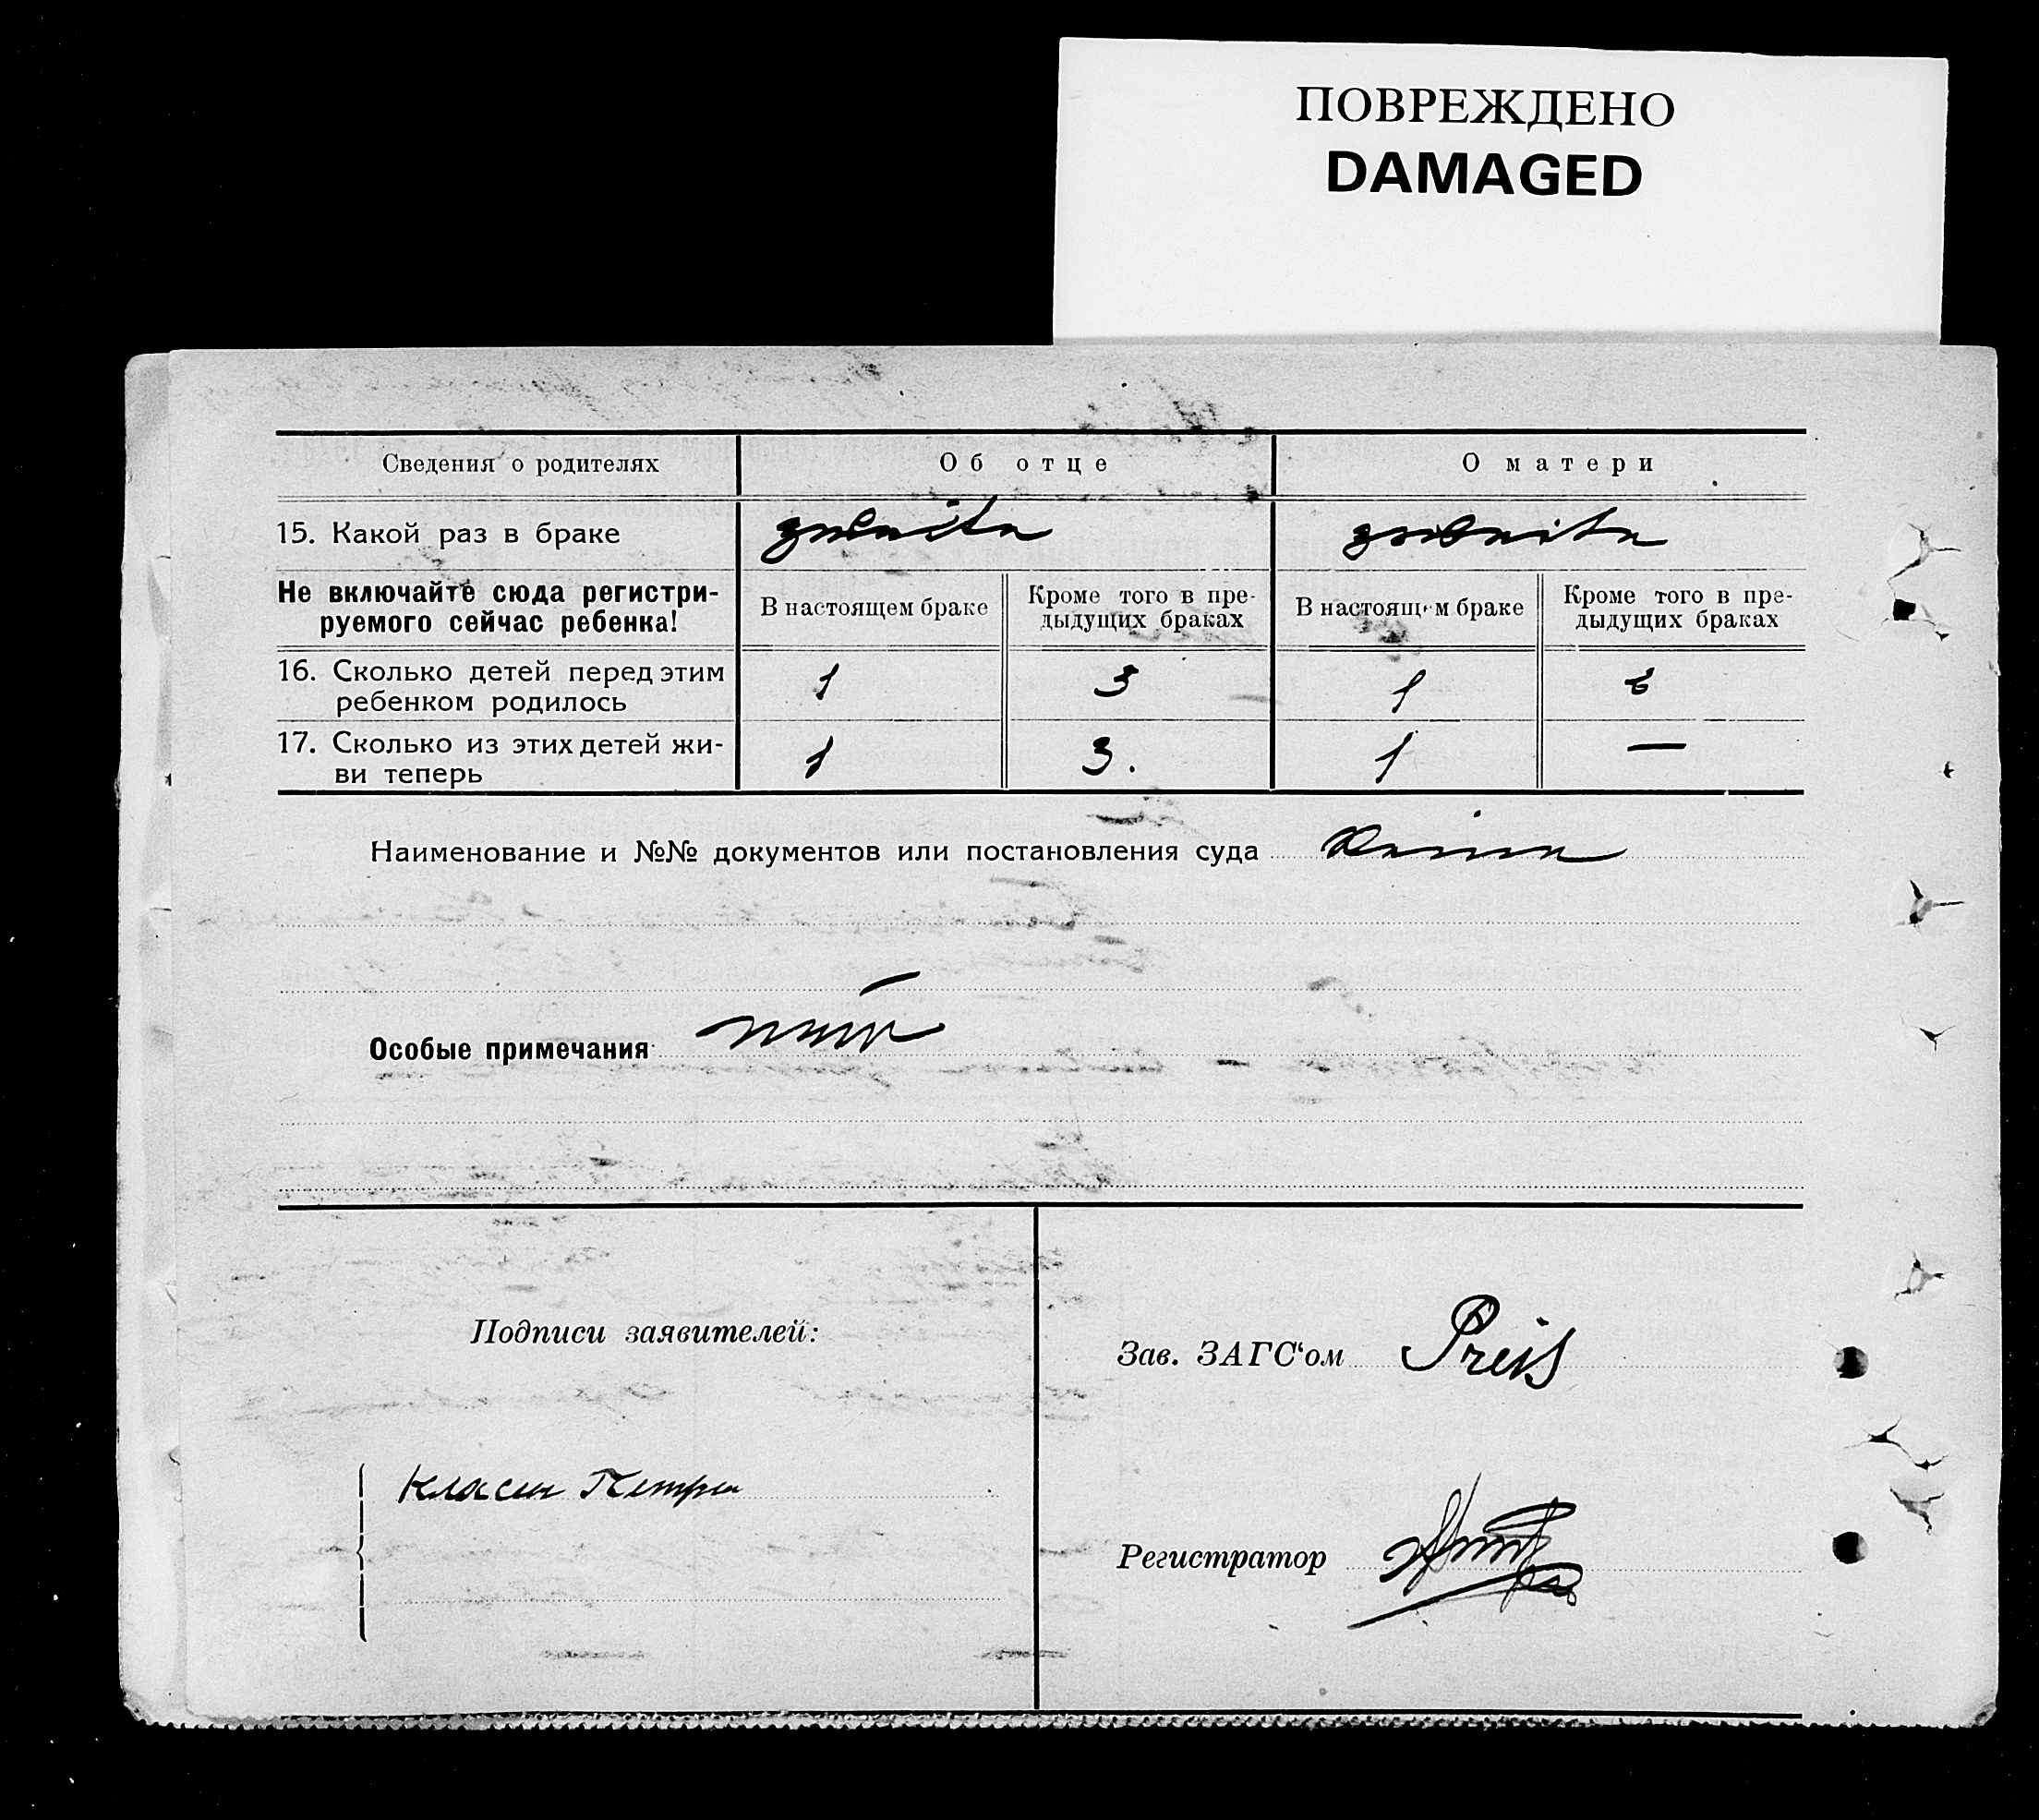 ПОВРЕЖДЕНО
DAMAGED
Сведения о родителях
Об отце
О матери
15. Какой раз в браке
zweite
zweite
Не включайте сюда регистри-
руемого сейчас ребенка!
В настоящем браке
Кроме того в пре-
дыдущих браках
В настоящем браке
Кроме того в пре-
дыдущих браках
16. Сколько детей перед этим
ребенком родилось
1
3
1
17. Сколько из этих детей жи-
ви теперь
1
3.
1
—
Наименование и №№ документов или постановления суда
Особые примечания
Подписи заявителей:
Зав. ЗАГС‘ом Preis
Классен Петр
Регистратор